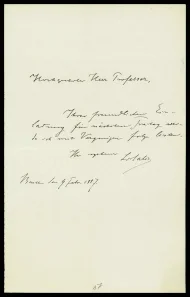 Hochgeehrter Herr Professor,
Ihrer freundlichen Ein-
ladung für nächsten Freitag werde
ich mit Vergnügen Folge leisten
Ihr ergebener
Wien den 9 Febr. 1887.